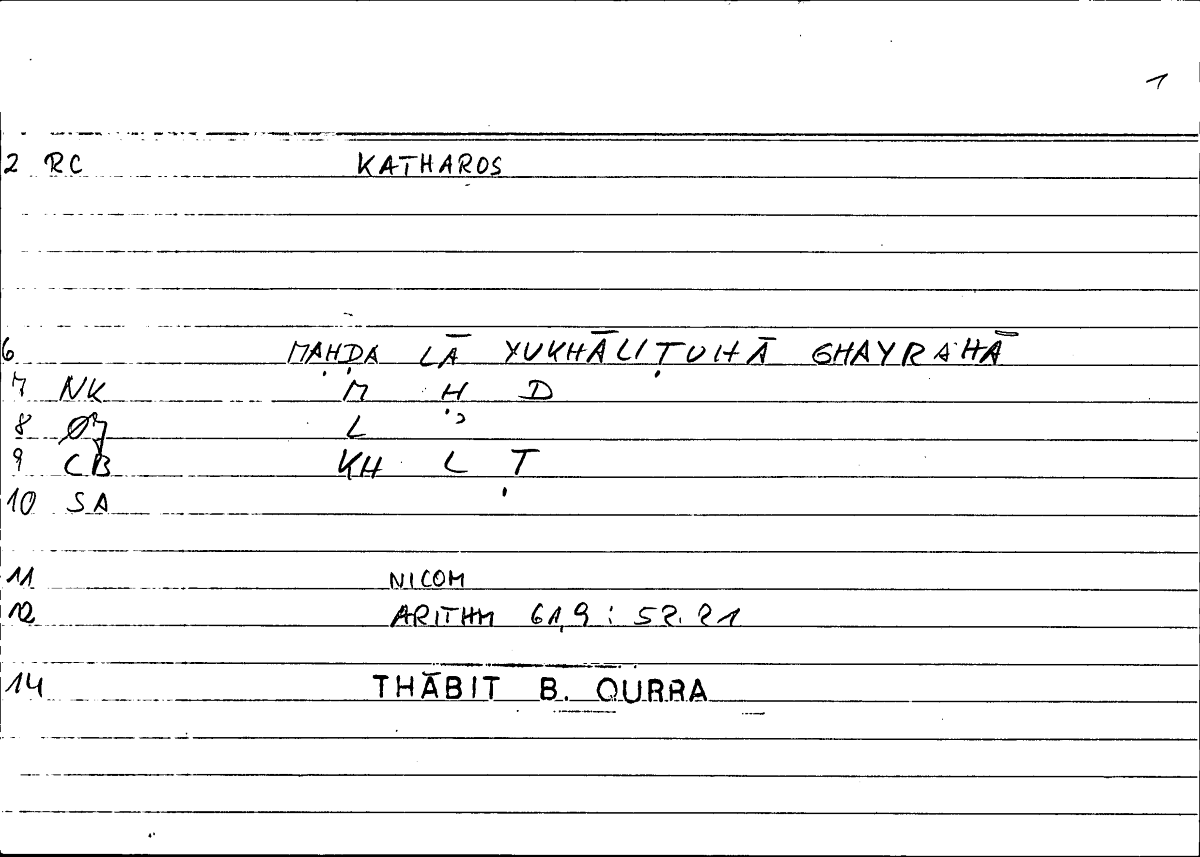 1
2 RC KATHAROS
6 MAḤḌA LĀ YUKHĀLIṬUHĀ GHAYRAHĀ
7 NK M Ḥ Ḍ
8 L
9 CB KH L Ṭ
10 SA
11 NICOM
12 ARITHM 61,9 : 52.21
14 THĀBIT B. QURRA